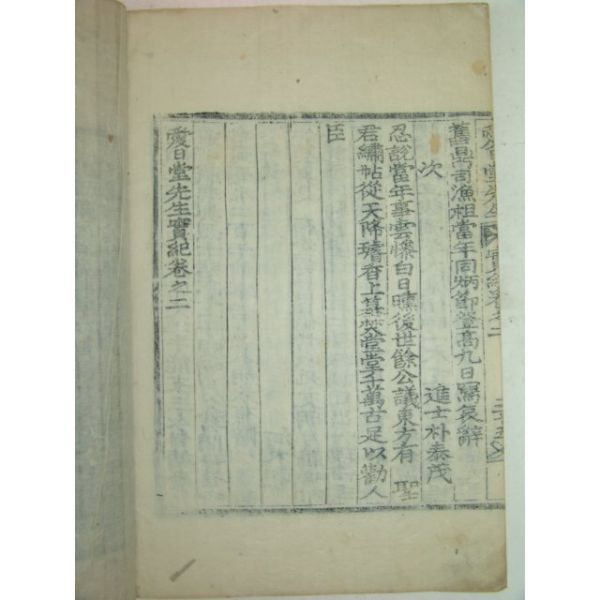 愛日堂先生實紀卷之二
舊㬌司漁祖當年同炳節登高九日寓哀辭
次
進士朴泰茂
忍說當年事雲慘白日曛後世餘公議東方有 聖
君繡帖從天降瓊香上墓焚堂堂千萬古足以勸人
臣
愛日堂先生實紀卷之二